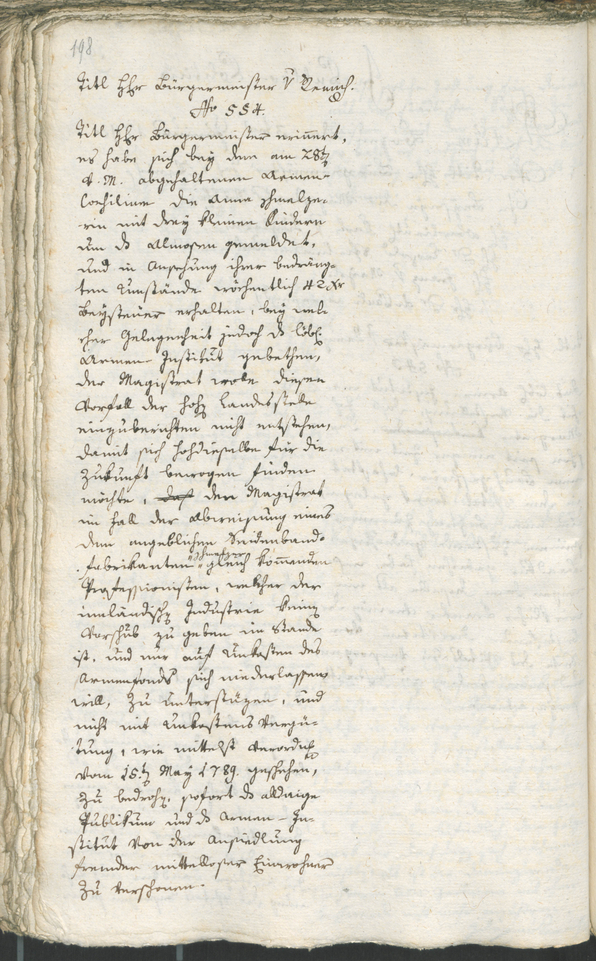 198
Titl Hr Bürgermeister v Remich.
No 554.
Titl Hr Bürgermeister erinnert,
es habe sich bey dem am 28t
v. M. abgehaltenen Armen-
Consilium die Anna Schmelze-
rin mit drey kleinen Kindern
um ds Allmosen gemeldet,
und in Ansehung ihrer bedräng-
ten Umstände wöchentlich 42 xr
Beysteuer erhalten, bey wel-
cher Gelegenheit jedoch ds löbl.
Armen-Institut gebethen,
der Magistrat wole diesen
Vorfall der hohen Landesstelle
einzuberichten nicht entstehen,
damit sich Hochdieselbe für die
Zukunft bewogen finden
möchte, den Magistrat
im Fall der Abweisung eines
dem angeblichen Seidenband-
fabrikanten Schmelzer gleich kommenden
Professionisten, welcher der
inländischen Industrie keinen
Vorschub zu geben im Stande
ist, und nur auf Unkosten des
Armenfonds sich niederlassen
will, zu unterstüzen, und
nicht mit Unkostens Vergü-
tung, wie mittelst Verordnung
vom 15t May 1789. geschehen,
zu bedrohen, sofort ds alldaige
Publikum und ds Armen-In-
stitut von der Ansiedlung
fremder mittelloser Einwohner
zu verschonen.